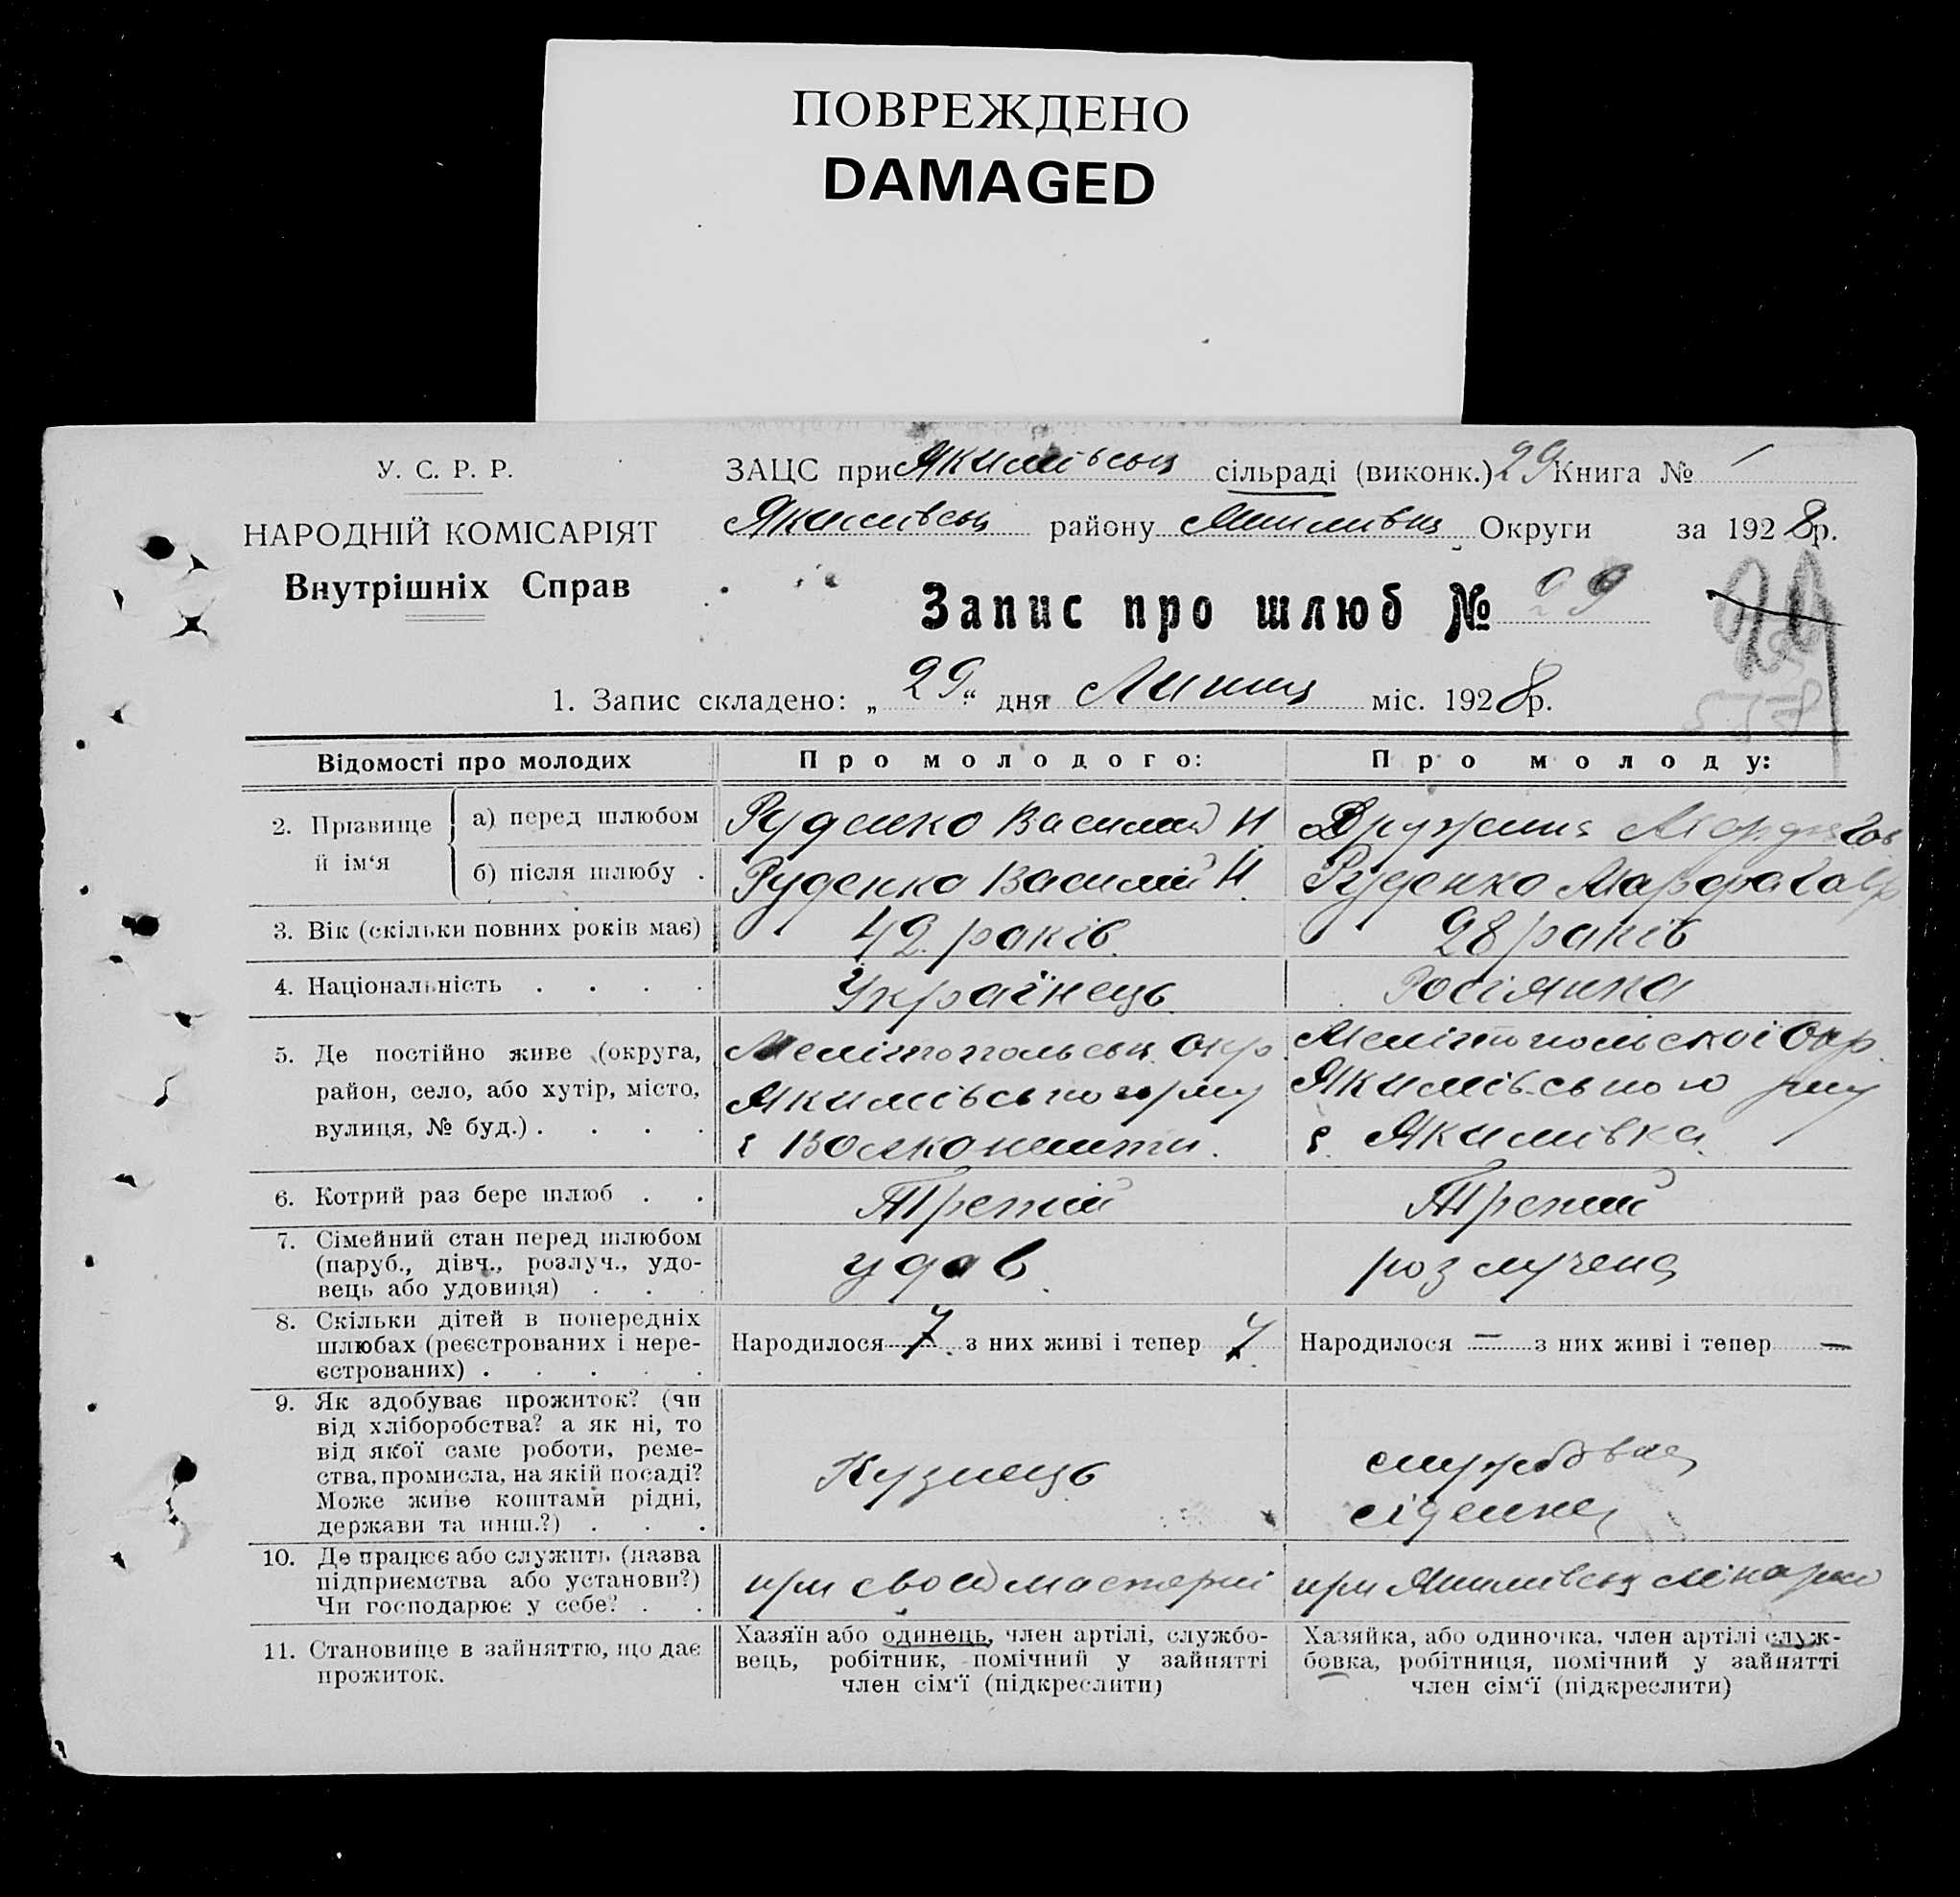 ПОВРЕЖДЕНО
DAMAGED
У. С. Р. Р.
НАРОДНІЙ КОМІСАРІЯТ
Внутрішніх Справ
ЗАЦС при Якимівськ сільраді (виконк.) 29 Книга № 1
Якимівськ району Округи за 1928 р.
Запис про шлюб № 29
1. Запис складено: „ 29 “ дня Липця міс. 1928 р.
Відомості про молодих
Про молодого:
Про молоду:
2. Прізвище й ім‘я
а) перед шлюбом
Руденко Василий И
Дружина
б) після шлюбу .
Руденко Василий И.
Руденко Марфа Гавр
3. Вік (скільки повних років має)
42 років.
28 років
4. Національність . . . .
Українець
Росіянка
5. Де постійно живе (округа,
район, село, або хутір, місто,
вулиця, № буд.) . . . .
Мелітопольськ. Окр.
Якимівського р-ну
с
Мелітопольської Окр.
Якимівського р-ну
с. Якимівка
6. Котрий раз бере шлюб . .
Третій
Третий
7. Сімейний стан перед шлюбом
(паруб., дівч., розлуч., удо-
вець або удовиця) . . .
удов
розлучена
8. Скільки дітей в попередніх
шлюбах (реєстрованих і нере-
єстрованих) . . . . .
Народилося 7 з них живі і тепер 7
Народилося — з них живі і тепер —
9. Як здобуває прожиток? (чи
від хліборобства? а як ні, то
від якої саме роботи, реме-
ства, промисла, на якій посаді?
Може живе коштами рідні,
держави та инш.?) . . .
Кузнець
службовка
сіделка
10. Де працює або служить (назва
підприємства або установи?)
Чи господарює у себе? . .
при своей мастерні
при Якимівськ лікарні
11. Становище в зайняттю, що дає
прожиток.
Хазяїн або одинець, член артілі, службо-
вець, робітник, помічний у зайнятті
член сім‘ї (підкреслити)
Хазяйка, або одиночка, член артілі служ-
бовка, робітниця, помічний у зайнятті
член сім‘ї (підкреслити)